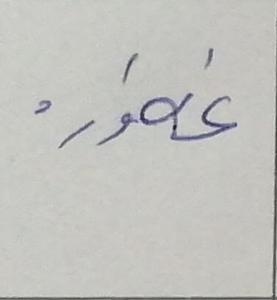 غفور